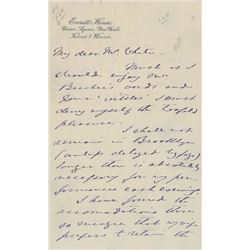 Everett House,
Union Square, New York.
Kerner & Weaver.
My dear Mr White.
Much as I
should enjoy Mr
Beecher's words and
love I must
deny myself the
pleasure.
I shall not
remain in Brooklyn
longer than is absolutely
necessary for my per
formances each evening.
I have found the
accomodations there
so meagre that
prefers to retain the